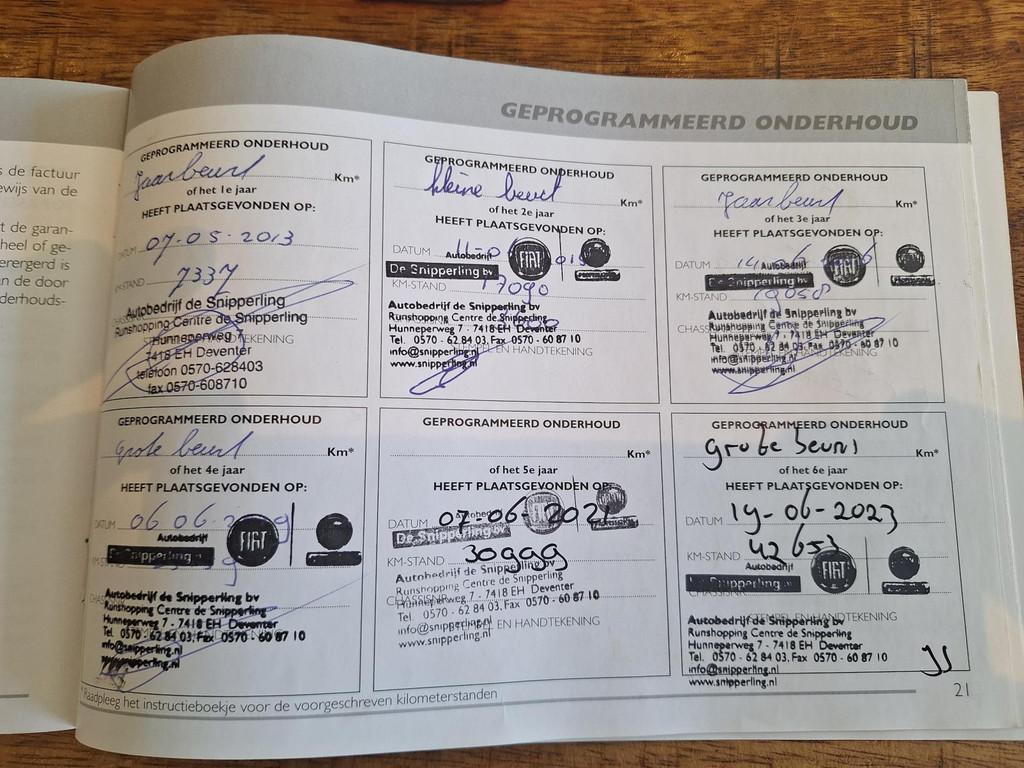 s de factuur
ewijs van de
t de garan-
heel of ge-
erergerd is
n de door
derhouds-
GEPROGRAMMEERD ONDERHOUD
GEPROGRAMMEERD ONDERHOUD
Jaarbeurt Km*
of het 1e jaar
HEEFT PLAATSGEVONDEN OP:
DATUM 07-05-2013
KM-STAND 7337
Autobedrijf de Snipperling
Runshopping Centre de Snipperling
Hunneperweg 7
7418 EH Deventer
telefoon 0570-628403
fax 0570-608710
GEPROGRAMMEERD ONDERHOUD
kleine beurt Km*
of het 2e jaar
HEEFT PLAATSGEVONDEN OP:
DATUM 11-06
Autobedrijf
De Snipperling bv
FIAT
KM-STAND 17090
Autobedrijf de Snipperling bv
Runshopping Centre de Snipperling
Hunneperweg 7 - 7418 EH Deventer
Tel. 0570 - 62 84 03, Fax 0570 - 60 87 10
info@snipperling.nl
STEMPEL EN HANDTEKENING
www.snipperling.nl
GEPROGRAMMEERD ONDERHOUD
Jaarbeurt Km*
of het 3e jaar
HEEFT PLAATSGEVONDEN OP:
DATUM 14-06
Autobedrijf
De Snipperling bv
FIAT
KM-STAND
Autobedrijf de Snipperling bv
Runshopping Centre de Snipperling
Hunneperweg 7 - 7418 EH Deventer
Tel. 0570 - 62 84 03, Fax 0570 - 60 87 10
info@snipperling.nl
www.snipperling.nl
GEPROGRAMMEERD ONDERHOUD
Grote beurt Km*
of het 4e jaar
HEEFT PLAATSGEVONDEN OP:
DATUM 06 06
Autobedrijf
De Snipperling bv
FIAT
Autobedrijf de Snipperling bv
Runshopping Centre de Snipperling
Hunneperweg 7 - 7418 EH Deventer
Tel. 0570 - 62 84 03, Fax 0570 - 60 87 10
info@snipperling.nl
www.snipperling.nl
GEPROGRAMMEERD ONDERHOUD
Km*
of het 5e jaar
HEEFT PLAATSGEVONDEN OP:
DATUM 07-06-2021
De Snipperling bv
FIAT
KM-STAND 30999
Autobedrijf de Snipperling bv
Runshopping Centre de Snipperling
Hunneperweg 7 - 7418 EH Deventer
Tel. 0570 - 62 84 03, Fax 0570 - 60 87 10
info@snipperling.nl
STEMPEL EN HANDTEKENING
www.snipperling.nl
GEPROGRAMMEERD ONDERHOUD
grote beurt Km*
of het 6e jaar
HEEFT PLAATSGEVONDEN OP:
DATUM 19-06-2023
KM-STAND 42653
Autobedrijf
De Snipperling bv
FIAT
CHASSISNR.
STEMPEL EN HANDTEKENING
Autobedrijf de Snipperling bv
Runshopping Centre de Snipperling
Hunneperweg 7 - 7418 EH Deventer
Tel. 0570 - 62 84 03, Fax 0570 - 60 87 10
info@snipperling.nl
www.snipperling.nl
* Raadpleeg het instructieboekje voor de voorgeschreven kilometerstanden
21